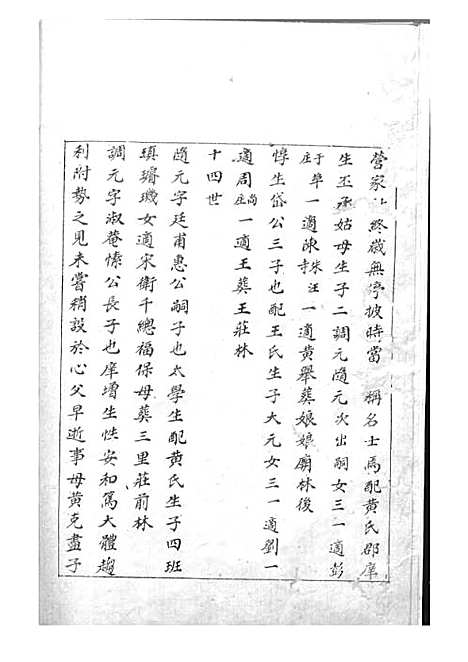 營家計終歲無停披時當 稱名士焉配黃氏郡庠
生丕承姑母生子二調元隨元次出嗣女三一適彭
于莊埠一適陳朱寺汪一適黃舉葬娘娘廟林後
惇生岱公三子也配王氏生子大元女三一適劉一
適周尚莊一適王葬王莊林
十四世
隨元字廷甫惠公嗣子也太學生配黃氏生子四班
瑱璿璣女適宋衛千總福保母葬三里莊前林
調元字淑菴愫公長子也庠增生性安和篤大體趨
利附勢之見未嘗稍設於心父早逝事母黃克盡子